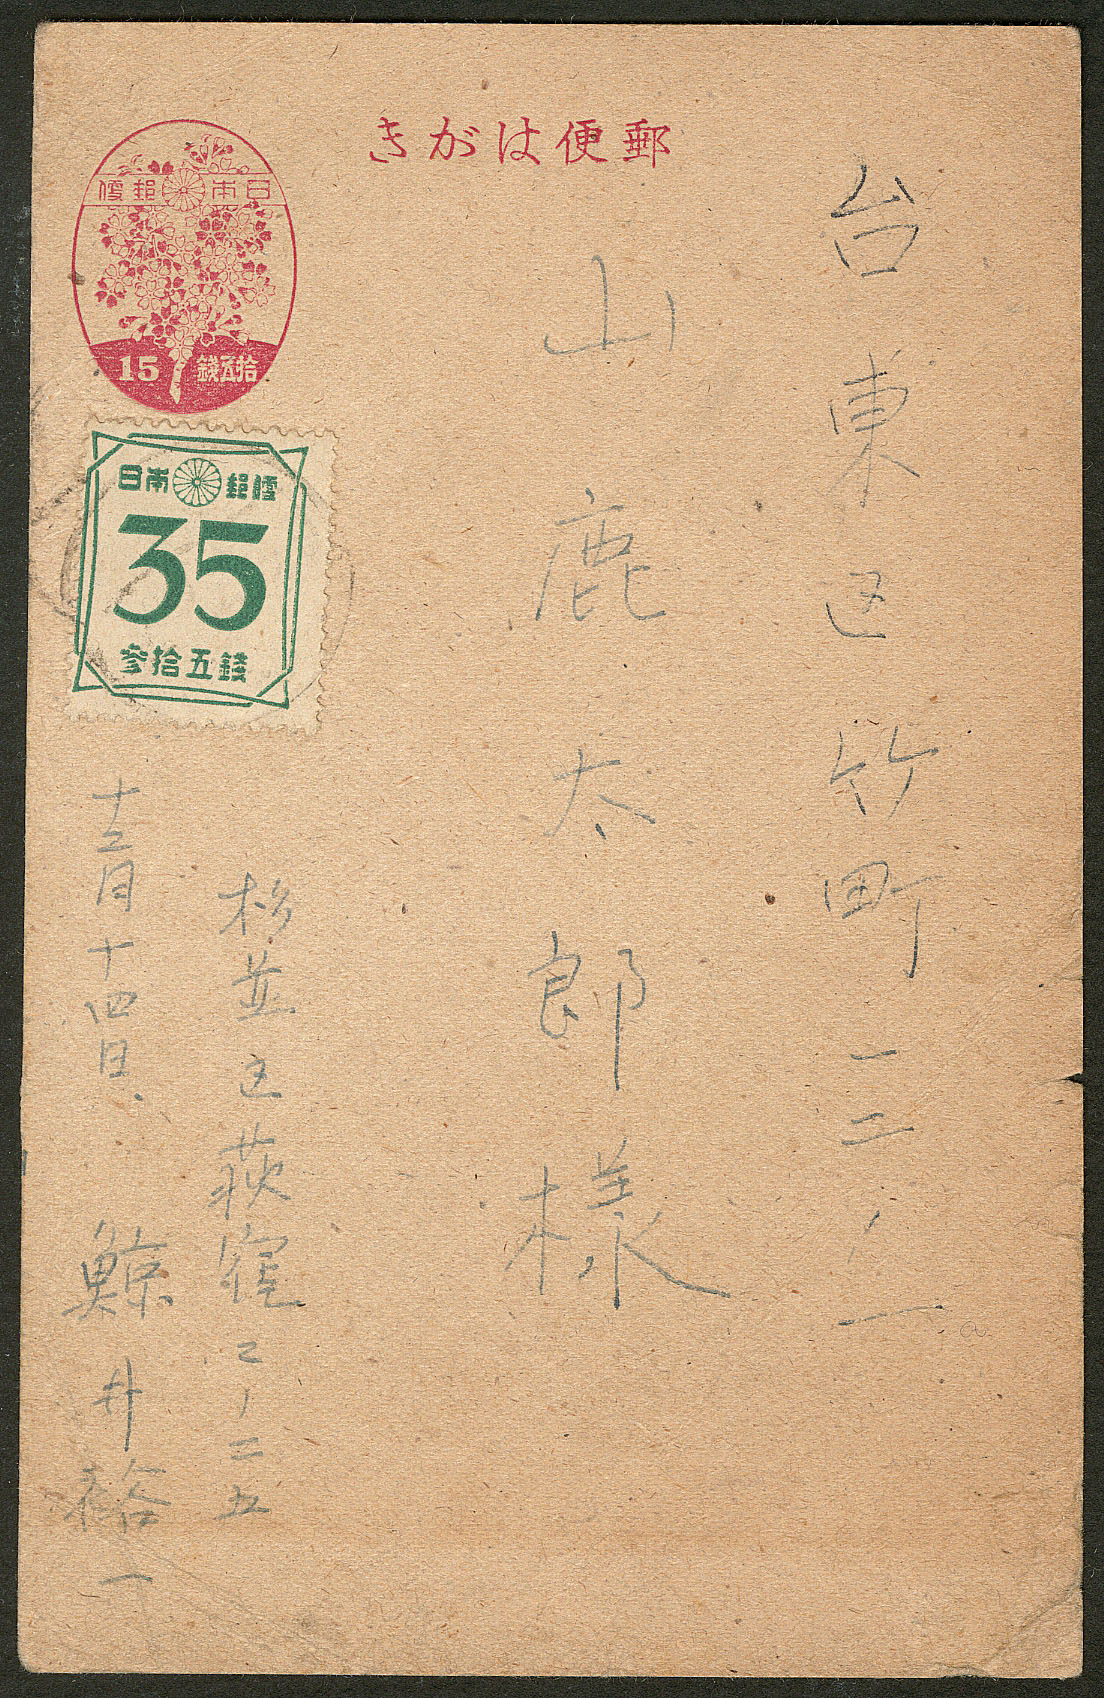 郵便はがき
日本郵便
15 拾五錢
日本郵便
35
参拾五錢
台東区竹町一二ノ一
山鹿太郎様
杉並区荻窪二ノ二五
十二月十四日、鯨井裕一